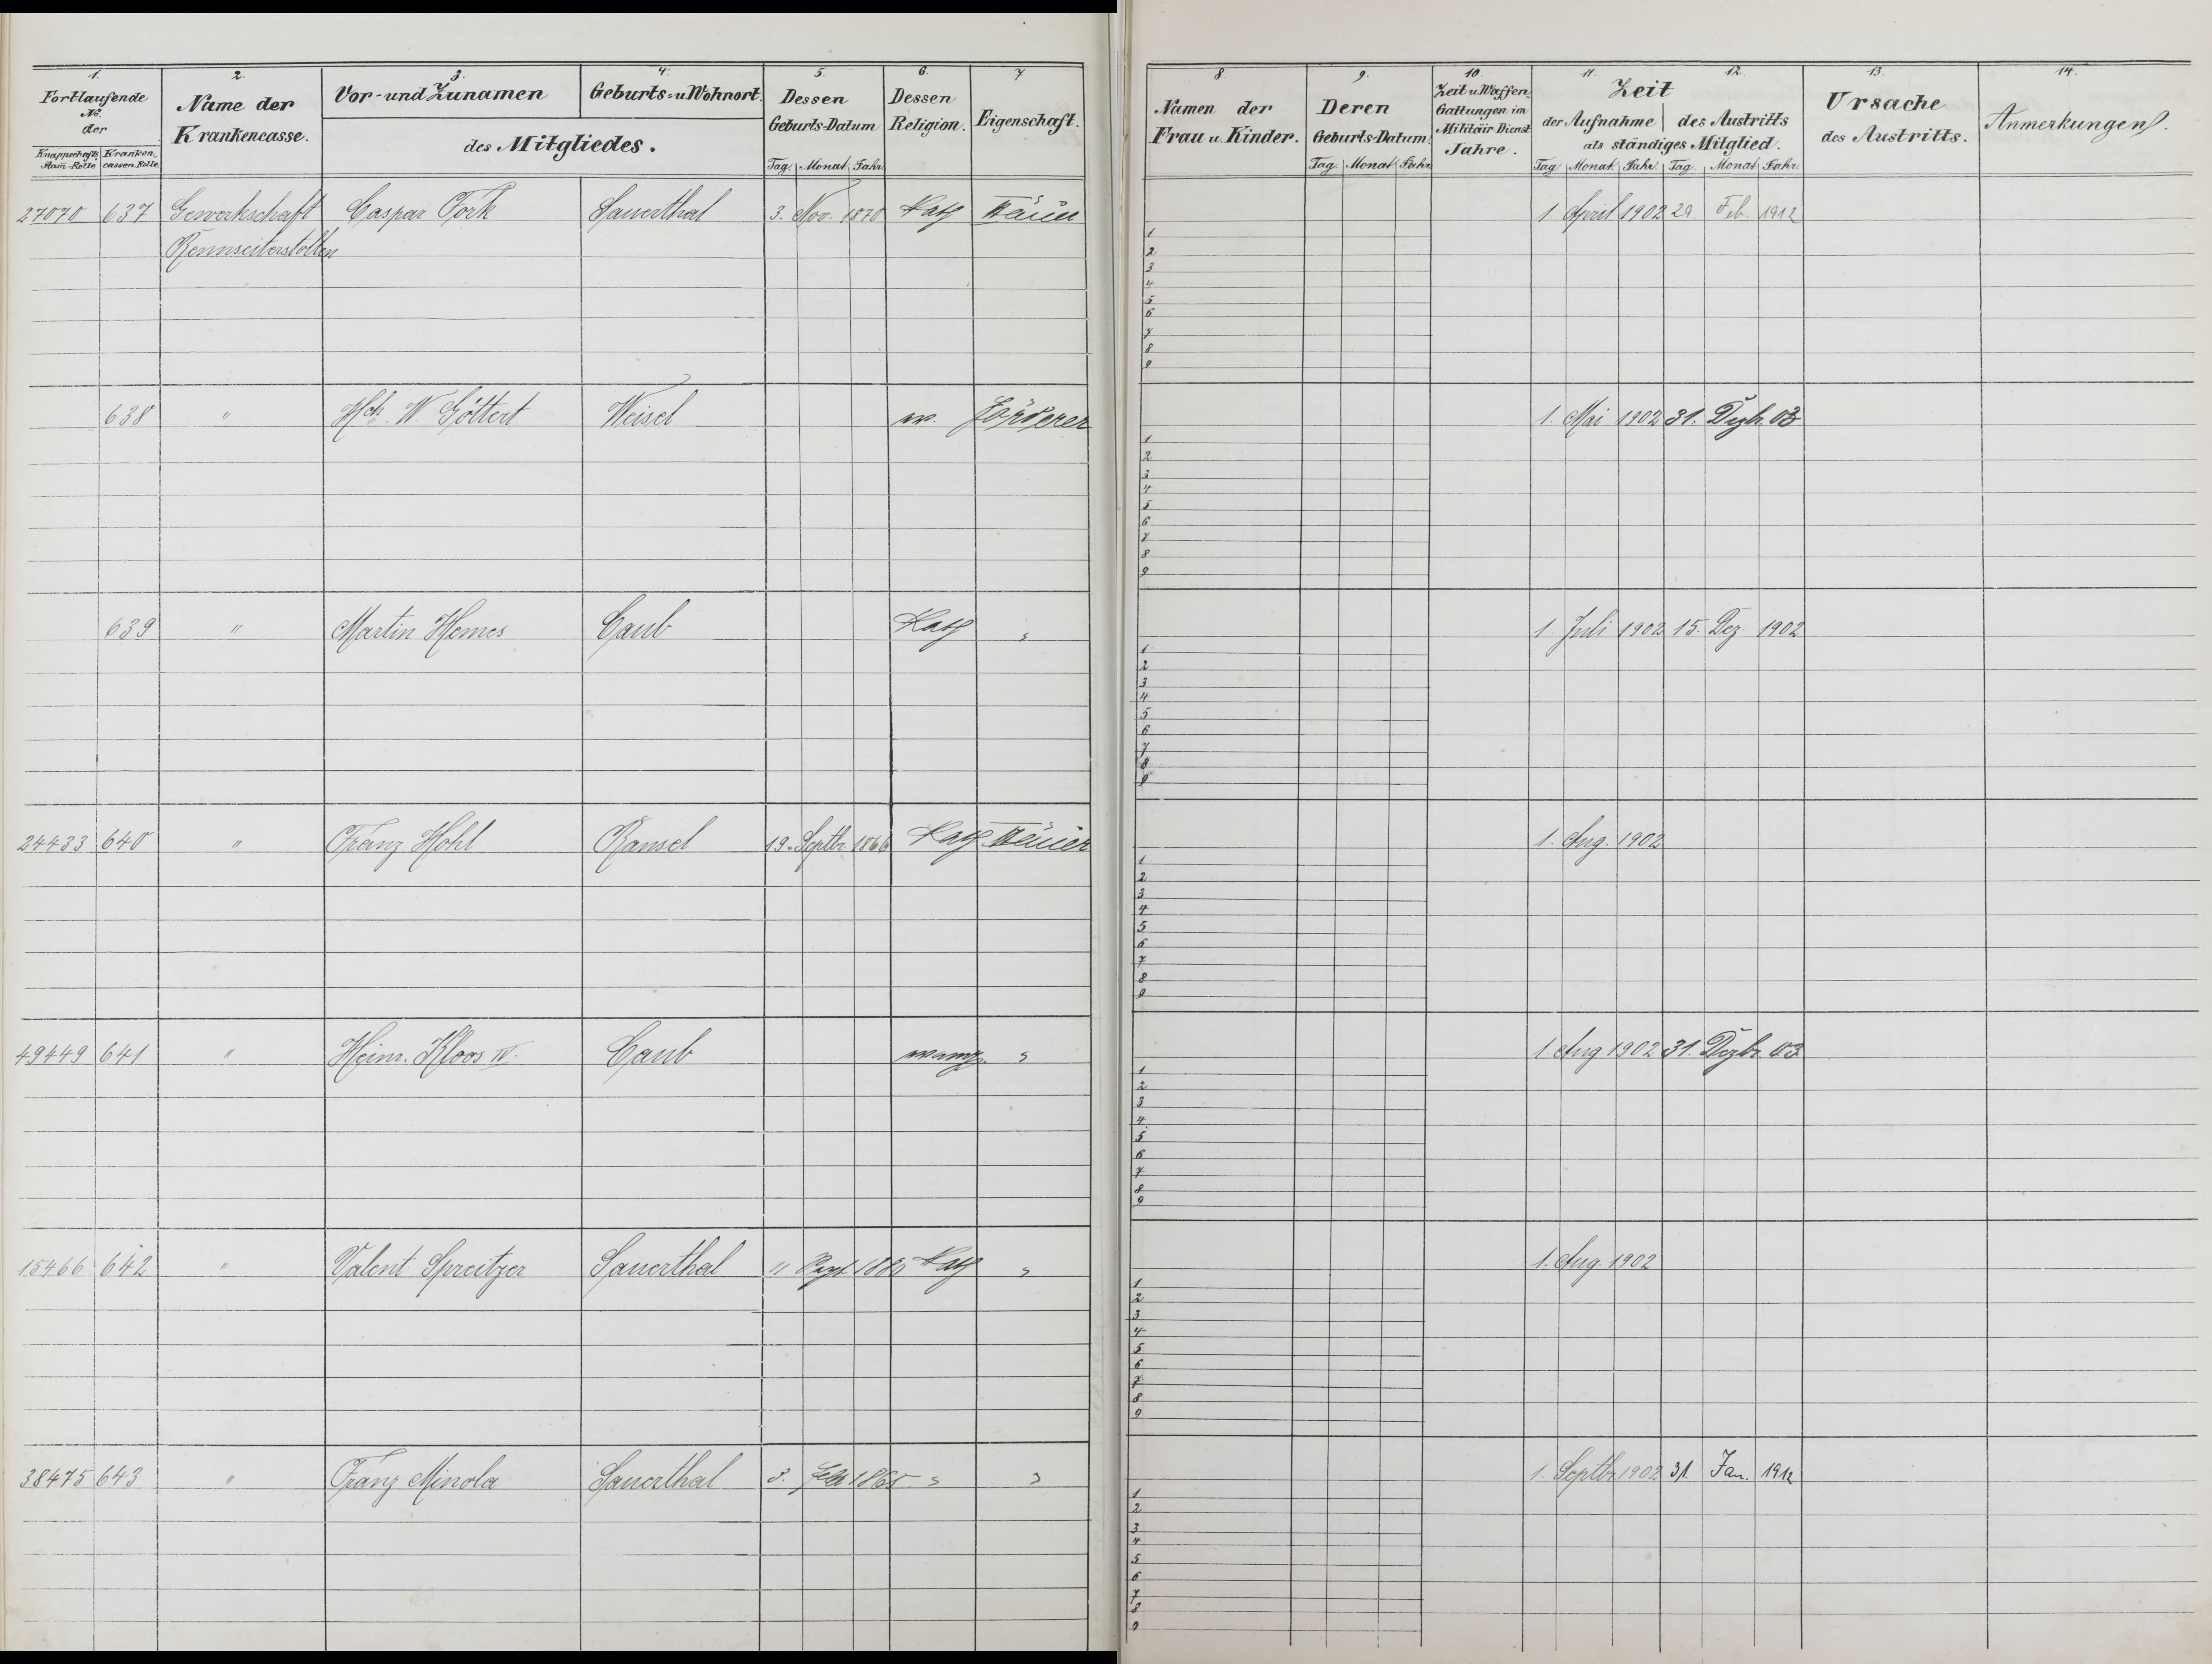 1. 2. 3. 4. 5. 6. 7
Fortlaufende No. der
Knappschafts Stam-Rolle Kranken cassen-Rolle
Name der Krankencasse.
Vor- und Zunamen Geburts- u Wohnort.
des Mitgliedes.
Dessen Geburts-Datum
Tag. Monat Jahr
Dessen Religion.
Eigenschaft.
8. 9. 10. 11. 12. 13. 14.
Namen der Frau u. Kinder.
Deren Geburts-Datum.
Tag Monat Jahr
Zeit u Waffen Gattungen im Militair Dienst Jahre.
Zeit
der Aufnahme des Austritts
als ständiges Mitglied.
Tag Monat. Jahr. Tag. Monat Jahr.
Ursache des Austritts.
Anmerkungen.
27070 637 Gewerkschaft Caspar Fork Sauerthal 3. Nov. 1870 Kath Häuer 1. April 1902 29. Feb. 1912
Rennseiterstollen
1
2
3
4
5
6
7
8
9
638 " Hch. W Göttert Weisel ev. Förderer 1. Mai 1902 31. Dezbr. 03
1
2
3
4
5
6
7
8
9
639 " Martin Hemes Caub Kath " 1. Juli 1902 15. Dez. 1902
1
2
3
4
5
6
7
8
9
24433 640 " Franz Hohl Ransel 19. Septbr 1866 Kath Häuer 1. Aug. 1902
1
2
3
4
5
6
7
8
9
49449 641 " Heinr. Kloos IV. Caub evang. " 1. Aug 1902 31. Dezbr. 03
1
2
3
4
5
6
7
8
9
15466 642 " Valent Spreitzer Sauerthal Kath " 1. Aug. 1902
1
2
3
4
5
6
7
8
9
38475 643 " Franz Minola Sauerthal 3. Febr 1865 " " 1. Septbr 1902 31. Jan. 1912
1
2
3
4
5
6
7
8
9